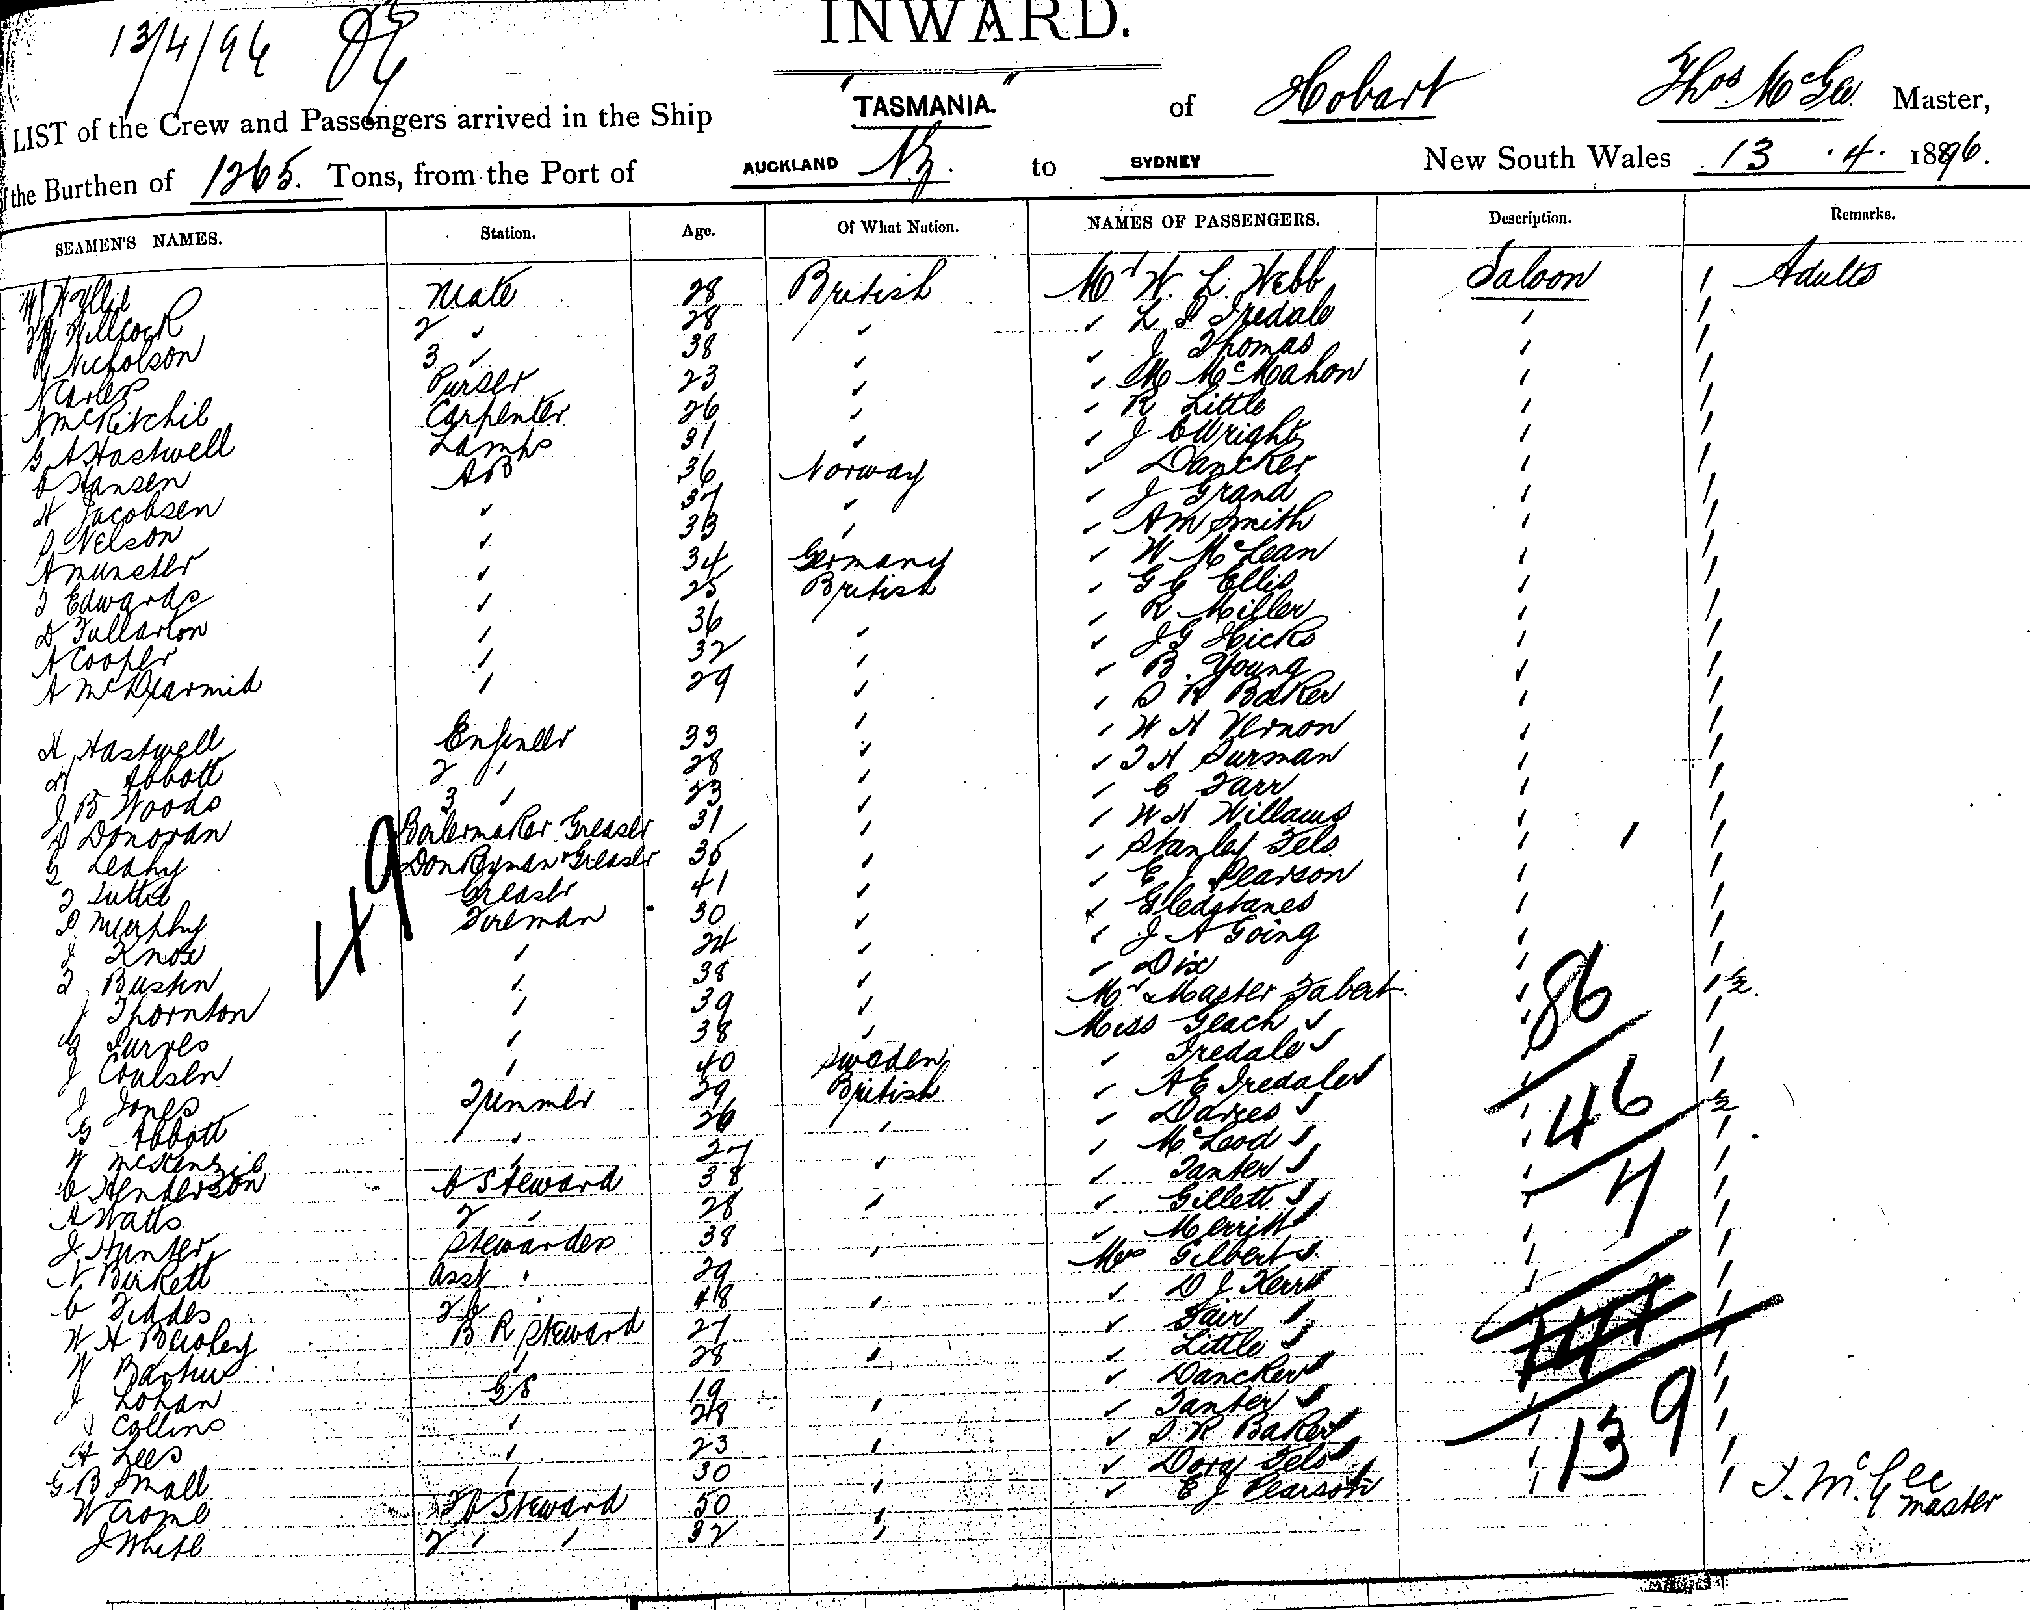 13/4/96
INWARD.
LIST of the Crew and Passengers arrived in the Ship "TASMANIA." of Hobart Thos McGee. Master,
of the Burthen of 1265. Tons, from the Port of AUCKLAND N.Z. to SYDNEY New South Wales 13 . 4 . 1896.
SEAMEN'S NAMES. Station. Age. Of What Nation. NAMES OF PASSENGERS. Description. Remarks.
Mate 28 British Mr W. L. Webb Saloon 1 Adults
Willcock 2 " 28 " " L S Iredale " 1
Nicholson 3 " 38 " " J Thomas " 1
Purser 23 " " M McMahon " 1
McRitchie Carpenter 26 " " R Little " 1
G A Hastwell Lamps 31 " " J C Wright " 1
O Hansen AB 36 Norway " Dancker " 1
H Jacobsen " 37 " " J Grand " 1
P Nelson " 33 " " A M Smith " 1
A Munster " 34 Germany " W McLean " 1
T Edwards " 25 British " G C Ellis " 1
D Fullarton " 36 " " R Miller " 1
A Cooper " 32 " " J G Hicks " 1
A McDearmid " 29 " " B. Young " 1
" S R Baker " 1
H Hastwell Engineer 33 " " W H Vernon " 1
W Abbott 2 " 28 " " T H Surman " 1
J B Woods 3 " 23 " " C Farr " 1
P Donovan Boilermaker Greaser 31 " " W H Willams " 1
Leahy Donkeyman Greaser 35 " " Stanley Fels " 1
T Tuttle Greaser 41 " " E J Pearson " 1
P Murphy Fireman 30 " " Gledstanes " 1
J Knox " 24 " " J A Going " 1
T Bustin " 38 " " Dix " 1
J Thornton " 39 " Mr & Master Tabert " 1 ½
G Purves " 38 " Miss Geach " 1
J Coulsen " 40 Sweden " Iredale " 1
J Jones Trimmer 29 British " A E Iredale " 1
G Abbott " 26 " " Davies " 1 ½
W McKenzie " 27 " " McLeod " 1
C Henderson C Steward 38 " " Tanter " 1
A Watts 2 " 28 " " Gillett " 1
J Hunter Stewardess 38 " " Merritt " 1
N Birkett Asst " 29 " Mrs Gilbert " 1
C Tiddes 48 " " D J Kerr " 1
W H Beasley B R Steward 27 " " Fair " 1
W " 28 " " Little " 1
J Lohan GS 19 " " Dancker " 1
J Collins " 28 " " Tanter " 1
H Lees " 23 " " S R Baker " 1
G B Small " 30 " " Dora Fels " 1
W Crome Steward 50 " " E J Pearson " 1
J White 2 " " 32 "
49
86
46
7
139
T. McGee
Master